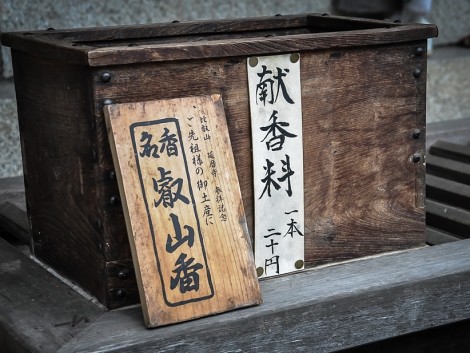 献香料
一本
二十円
比叡山 延暦寺 参拝記念
ご先祖様の御土産に
香名
叡山香